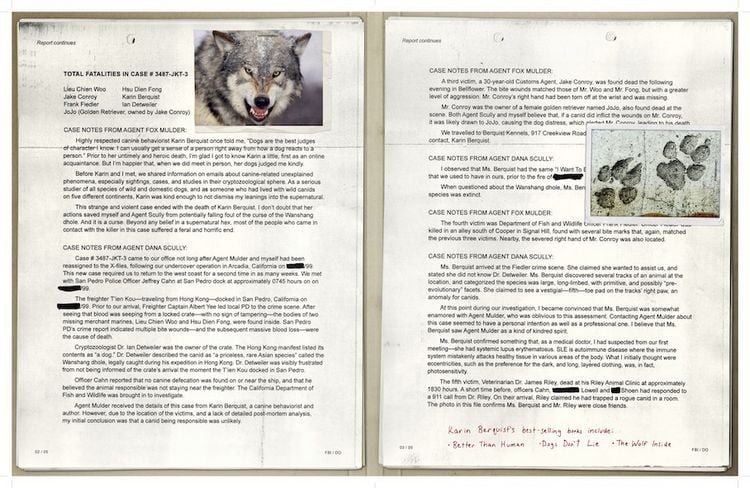 Report continues
TOTAL FATALITIES IN CASE # 3487-JKT-3
Lieu Chien Woo Hsu Dien Fong
Jake Conroy Karin Berquist
Frank Fiedler Ian Detweiler
JoJo (Golden Retriever, owned by Jake Conroy)
CASE NOTES FROM AGENT FOX MULDER:
Highly respected canine behaviorist Karin Berquist once told me, "Dogs are the best judges
of character I know. I can usually get a sense of a person right away from how a dog reacts to a
person." Prior to her untimely and heroic death, I'm glad I got to know Karin a little, first as an online
acquaintance. But I'm happier that, when we did meet in person, her dogs judged me kindly.
Before Karin and I met, we shared information on emails about canine-related unexplained
phenomena, especially sightings, cases, and studies in their cryptozoological sphere. As a serious
student of all species of wild and domestic dogs, and as someone who had lived with wild canids
on five different continents, Karin was kind enough to not dismiss my leanings into the supernatural.
This strange and violent case ended with the death of Karin Berquist. I don't doubt that her
actions saved myself and Agent Scully from potentially falling foul of the curse of the Wanshang
dhole. And it is a curse. Beyond any belief in a supernatural hex, most of the people who came in
contact with the killer in this case suffered a feral and horrific end.
CASE NOTES FROM AGENT DANA SCULLY:
Case # 3487-JKT-3 came to our office not long after Agent Mulder and myself had been
reassigned to the X-files, following our undercover operation in Arcadia, California on /99.
This new case required us to return to the west coast for a second time in as many weeks. We met
with San Pedro Police Officer Jeffrey Cahn at San Pedro dock at approximately 0745 hours on
/99.
The freighter T'ien Kou—traveling from Hong Kong—docked in San Pedro, California on
/99. Prior to our arrival, Freighter Captain Albert Yee led local PD to the crime scene. After
seeing that blood was seeping from a locked crate—with no sign of tampering—the bodies of two
missing merchant marines, Lieu Chien Woo and Hsu Dien Fong, were found inside. San Pedro
PD's crime report indicated multiple bite wounds—and the subsequent massive blood loss—were
the cause of death.
Cryptozoologist Dr. Ian Detweiler was the owner of the crate. The Hong Kong manifest listed its
contents as "a dog." Dr. Detweiler described the canid as "a priceless, rare Asian species" called the
Wanshang dhole, legally caught during his expedition in Hong Kong. Dr. Detweiler was visibly frustrated
from not being informed of the crate's arrival the moment the T'ien Kou docked in San Pedro.
Officer Cahn reported that no canine defecation was found on or near the ship, and that he
believed the animal responsible was not staying near the freighter. The California Department of
Fish and Wildlife was brought in to investigate.
Agent Mulder received the details of this case from Karin Berquist, a canine behaviorist and
author. However, due to the location of the victims, and a lack of detailed post-mortem analysis,
my initial conclusion was that a canid being responsible was unlikely.
02 / 05 FBI / DO
Report continues
CASE NOTES FROM AGENT FOX MULDER:
A third victim, a 30-year-old Customs Agent, Jake Conroy, was found dead the following
evening in Bellflower. The bite wounds matched those of Mr. Woo and Mr. Fong, but with a greater
level of aggression: Mr. Conroy's right hand had been torn off at the wrist and was missing.
Mr. Conroy was the owner of a female golden retriever named JoJo, also found dead at the
scene. Both Agent Scully and myself believe that, if a canid did inflict the wounds on Mr. Conroy,
it was likely drawn to JoJo, causing the dog distress, which Mr. Conroy, leading to his death
We travelled to Berquist Kennels, 917 Creekview Road
contact, Karin Berquist.
CASE NOTES FROM AGENT DANA SCULLY:
I observed that Ms. Berquist had the same "I Want To
that we used to have in ours, prior to the fire of
When questioned about the Wanshang dhole, Ms.
species was extinct.
CASE NOTES FROM AGENT FOX MULDER:
The fourth victim was Department of Fish and Wildlife
killed in an alley south of Cooper in Signal Hill, found with several bite marks that, again, matched
the previous three victims. Nearby, the severed right hand of Mr. Conroy was also located.
CASE NOTES FROM AGENT DANA SCULLY:
Ms. Berquist arrived at the Fiedler crime scene. She claimed she wanted to assist us, and
stated she did not know Dr. Detweiler. Ms. Berquist discovered several tracks of an animal at the
location, and categorized the species was large, long-limbed, with primitive, and possibly "pre-
evolutionary" facets. She claimed to see a vestigial—fifth—toe pad on the tracks' right paw, an
anomaly for canids.
At this point during our investigation, I became convinced that Ms. Berquist was somewhat
enamored with Agent Mulder, who was oblivious to this assessment. Contacting Agent Mulder about
this case seemed to have a personal intention as well as a professional one. I believe that Ms.
Berquist saw Agent Mulder as a kind of kindred spirit.
Ms. Berquist confirmed something that, as a medical doctor, I had suspected from our first
meeting—she had systemic lupus erythematosus. SLE is an autoimmune disease where the immune
system mistakenly attacks healthy tissue in various areas of the body. What I initially thought were
eccentricities, such as the preference for the dark, and long, layered clothing, was, in fact,
photosensitivity.
The fifth victim, Veterinarian Dr. James Riley, dead at his Riley Animal Clinic at approximately
1830 hours. A short time before, officers Cahn, Lowell and Sheen had responded to
a 911 call from Dr. Riley. On their arrival, Riley claimed he had trapped a rogue canid in a room.
The photo in this file confirms Ms. Berquist and Mr. Riley were close friends.
Karin Berquist's best-selling books include:
• Better Than Human • Dogs Don't Lie • The Wolf Inside
03 / 05 FBI / DO